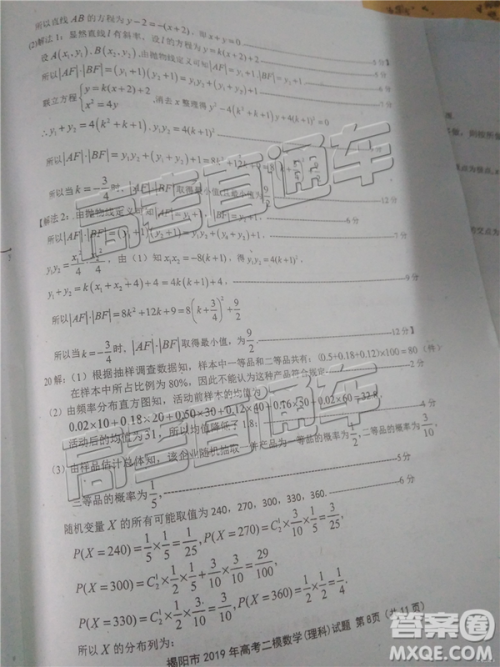 所以直线 AB 的方程为 y－2＝－(x＋2), 即 x＋y＝0
(2)解法 1：显然直线 l 有斜率，设 l 的方程为 y＝k(x＋2)＋2 5分
设 A(x₁,y₁), B(x₂,y₂), 由抛物线定义可知|AF|＝y₁＋1,|BF|＝y₂＋1
所以|AF|·|BF|＝(y₁＋1)(y₂＋1)＝y₁y₂＋y₁＋y₂＋1
联立方程 {y＝k(x＋2)＋2 x²＝4y ,消去 x 整理得 y²－4(k²＋k＋1)y＋4(k＋1)²＝0
∴y₁＋y₂＝4(k²＋k＋1), y₁y₂＝4(k＋1)²
所以|AF|·|BF|＝y₁y₂＋(y₁＋y₂)＋1
所以当 k＝－3/4 时, |AF|·|BF|取得最小值,且最小值为
【解法 2：由抛物线定义可知|AF|＝y₁＋1
所以|AF|·|BF|＝(y₁＋1)(y₂＋1)＝y₁y₂＋(y₁＋y₂)＋1 7分
y₁y₂＝x₁²/4·x₂²/4, 由（1）知 x₁x₂＝－8(k＋1), 得 y₁y₂＝4(k＋1)²
y₁＋y₂＝k(x₁＋x₂＋4)＋4＝4k(k＋1)＋4, 9分
所以|AF|·|BF|＝8k²＋12k＋9＝8(k＋3/4)²＋9/2
所以当 k＝－3/4 时, |AF|·|BF|取得最小值，最小值为 9/2 12分】
20 解：（1）根据抽样调查数据知，样本中一等品和二等品共有：(0.5＋0.18＋0.12)×100＝80（件）
在样本中所占比例为 80%，因此不能认为这种产品符合规定
（2）由频率分布直方图知，活动前样本的均值为
0.02×10＋0.18×20＋0.50×30＋0.12×40
活动后的均值为 31，所以均值降低了 1.8； 4分
（3）由样品估计总体知，该企业随机抽取一件产品为一等品的概率为 1/2,二等品的概率为 3/10,
三等品的概率为 1/5, 5分
随机变量 X 的所有可能取值为 240，270，300，330，360. 6分
P(X＝240)＝1/5×1/5＝1/25, P(X＝270)＝C₂¹×3/10×1/5＝3/25,
P(X＝300)＝C₂¹×1/2×1/5＋3/10×3/10＝29/100,
P(X＝330)＝C₂¹×1/2×3/10＝3/10, P(X＝360)＝1/2×1/2＝1/4.
所以 X 的分布列为：
揭阳市 2019 年高考二模数学(理科)试题 第 8页（共 11 页）
高考直通车
高考直通车
答案圈
MXQE.COM